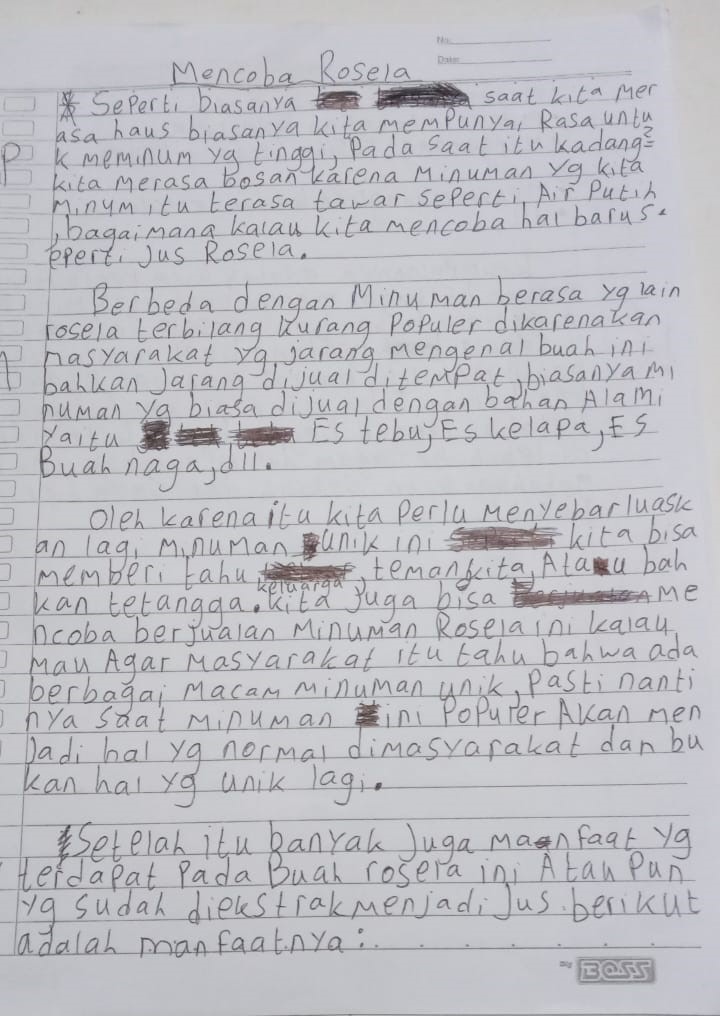 No:
Date:
Mencoba Rosela
Seperti biasanya saat kita mer
asa haus biasanya kita mempunyai Rasa untu
k meminum yg tinggi, Pada saat itu kadang=
kita merasa bosan karena Minuman yg kita
minum itu terasa tawar seperti Air Putih
, bagaimana kalau kita mencoba hal baru s.
eperti Jus Rosela.
Berbeda dengan Minuman berasa yg lain
rosela terbilang kurang Populer dikarenakan
masyarakat yg jarang mengenal buah ini
bahkan Jarang dijual ditempat, biasanya mi
numan yg biasa dijual dengan bahan Alami
yaitu Es tebu, Es kelapa, Es
Buah naga, dll.
Oleh karena itu kita Perlu Menyebarluask
an lagi Minuman unik ini kita bisa
memberi tahu keluarga, teman kita, Atau bah
kan tetangga. kita Juga bisa Me
ncoba berjualan Minuman Rosela ini kalau
mau Agar Masyarakat itu tahu bahwa ada
berbagai Macam minuman unik, Pasti nanti
nya saat Minuman ini Populer Akan men
Jadi hal yg normal dimasyarakat dan bu
kan hal yg unik lagi.
Setelah itu banyak Juga manfaat yg
terdapat Pada Buah rosela ini Atau Pun
yg sudah diekstrak menjadi Jus. berikut
adalah manfaatnya:
BOSS